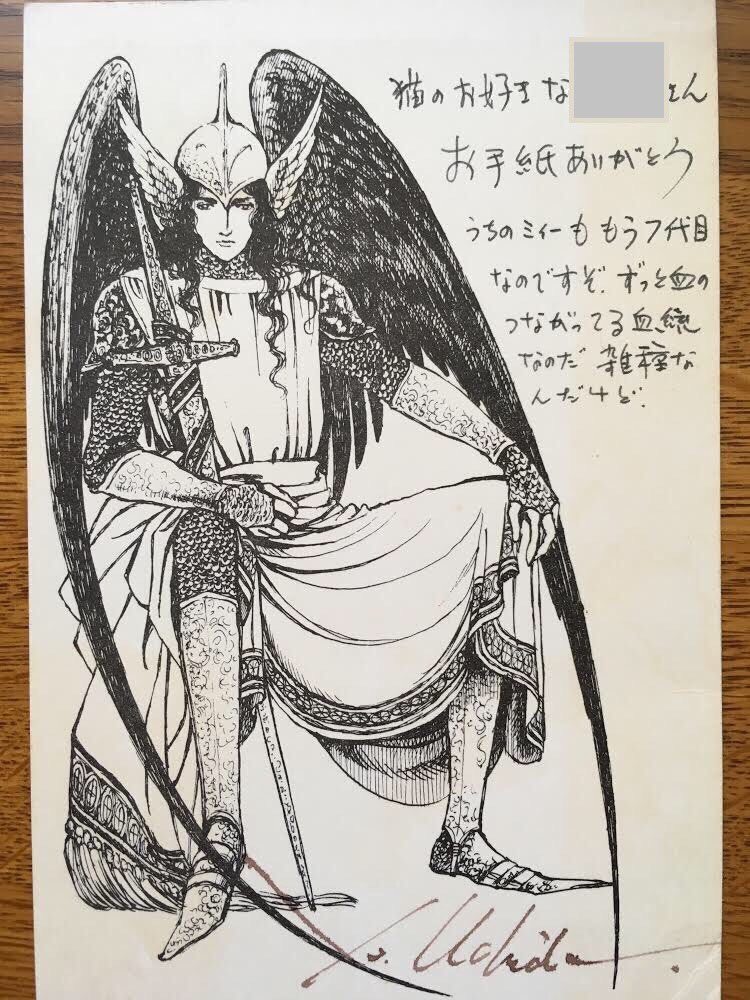 猫のお好きな さん
お手紙ありがとう
うちのミィーももう7代目
なのですぞ。ずっと血の
つながってる血統
なのだ 雑種な
んだけど.
Uchida